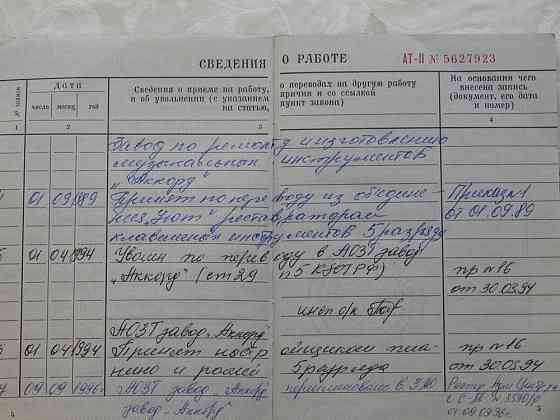 СВЕДЕНИЯ О РАБОТЕ АТ-II № 5627923
№ записи
Дата
число месяц год
Сведения о приеме на работу, о переводах на другую работу
и об увольнении (с указанием причин и со ссылкой
на статью, пункт закона)
На основании чего
внесена запись
(документ, его дата
и номер)
1 2 3 4
Завод по ремонту и изготовлению
музыкальных инструментов
"Аккорд"
01 09 1989 Принят по переводу из объедине- Приказ №1
ния "Уют" реставратором от 01.09.89
клавишных инструментов 5 разряда
01 04 1994 Уволен по переводу в АОЗТ завод
"Аккорд" (ст 29 п 5 КЗОТ РФ) пр №16
от 30.03.94
инсп о/к
АОЗТ завод "Аккорд"
01 04 1994 Принят настройщиком пиа- пр №16
нино и роялей 5 разряда от 30.03.94
09 09 1996 АОЗТ завод "Аккорд" переименовано в ЗАО
завод "Аккорд" от 09.09.96г.